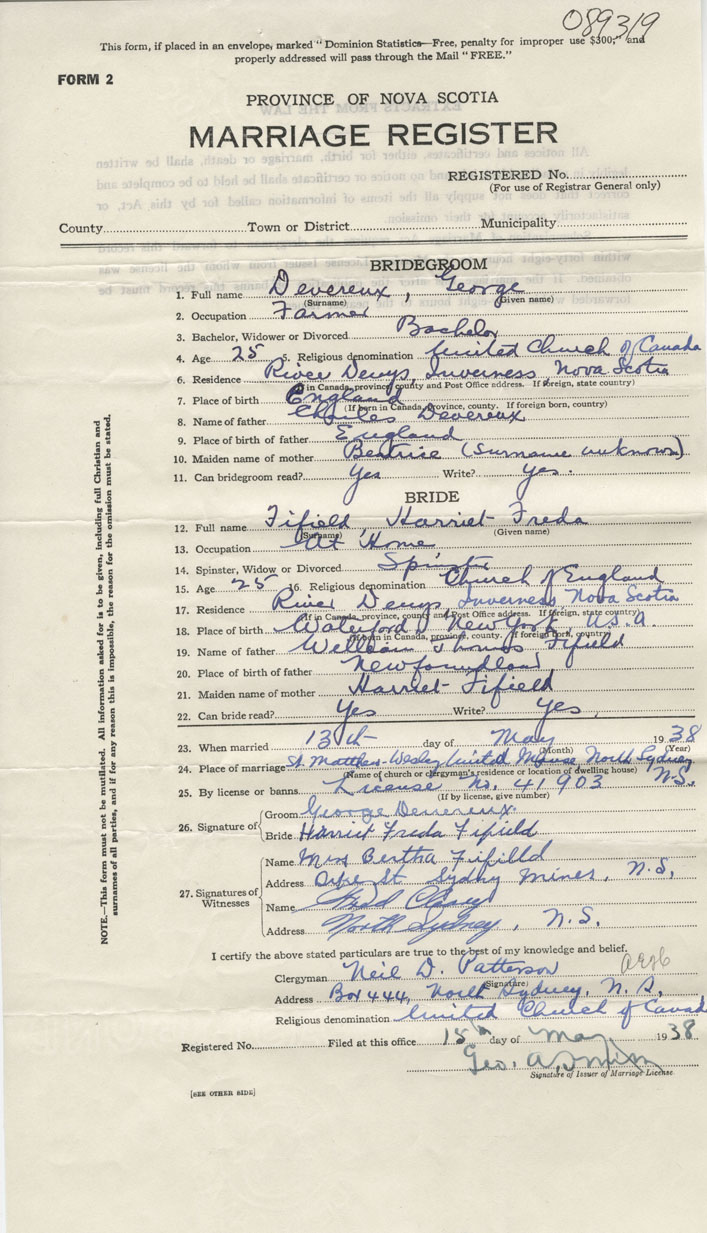 089319
This form, if placed in an envelope, marked "Dominion Statistics—Free, penalty for improper use $300;" and
properly addressed will pass through the Mail "FREE."
FORM 2
PROVINCE OF NOVA SCOTIA
MARRIAGE REGISTER
REGISTERED No.
(For use of Registrar General only)
County Town or District Municipality
BRIDEGROOM
1. Full name Devereux, George
(Surname) (Given name)
2. Occupation Farmer
3. Bachelor, Widower or Divorced Bachelor
4. Age 25 5. Religious denomination United Church of Canada
6. Residence River Denys, Inverness Nova Scotia
(If in Canada, province, county and Post Office address. If foreign, state country)
7. Place of birth England
(If born in Canada, province, county. If foreign born, country)
8. Name of father Charles Devereux
9. Place of birth of father England
10. Maiden name of mother Beatrice (Surname unknown)
11. Can bridegroom read? Yes Write? yes.
BRIDE
12. Full name Fifield, Harriet Freda
(Surname) (Given name)
13. Occupation At Home
14. Spinster, Widow or Divorced Spinster
15. Age 25 16. Religious denomination Church of England
17. Residence River Denys, Inverness Nova Scotia
(If in Canada, province, county and Post Office address. If foreign, state country)
18. Place of birth Waterford, New York, U.S.A.
(If born in Canada, province, county. If foreign born, country)
19. Name of father William Thomas Fifield
20. Place of birth of father Newfoundland
21. Maiden name of mother Harriet Fifield
22. Can bride read? Yes Write? Yes
23. When married 13th day of May 1938
(Month) (Year)
24. Place of marriage St. Matthew-Wesley United Manse North Sydney N.S.
(Name of church or clergyman's residence or location of dwelling house)
25. By license or banns License No. 41903
(If by license, give number)
26. Signature of Groom George Devereux.
Bride Harriet Freda Fifield
27. Signatures of Witnesses
Name Mrs Bertha Fifield
Address St Sydney Mines, N.S.
Name
Address North Sydney, N.S.
I certify the above stated particulars are true to the best of my knowledge and belief.
Clergyman Neil D. Patterson
(Signature)
Address Box 444, North Sydney, N.S.
Religious denomination United Church of Canada
Registered No. Filed at this office 18th day of May 1938
Geo. A.
Signature of Issuer of Marriage License
[SEE OTHER SIDE]
NOTE.—This form must not be mutilated. All information asked for is to be given, including full Christian and
surnames of all parties, and if for any reason this is impossible, the reason for the omission must be stated.